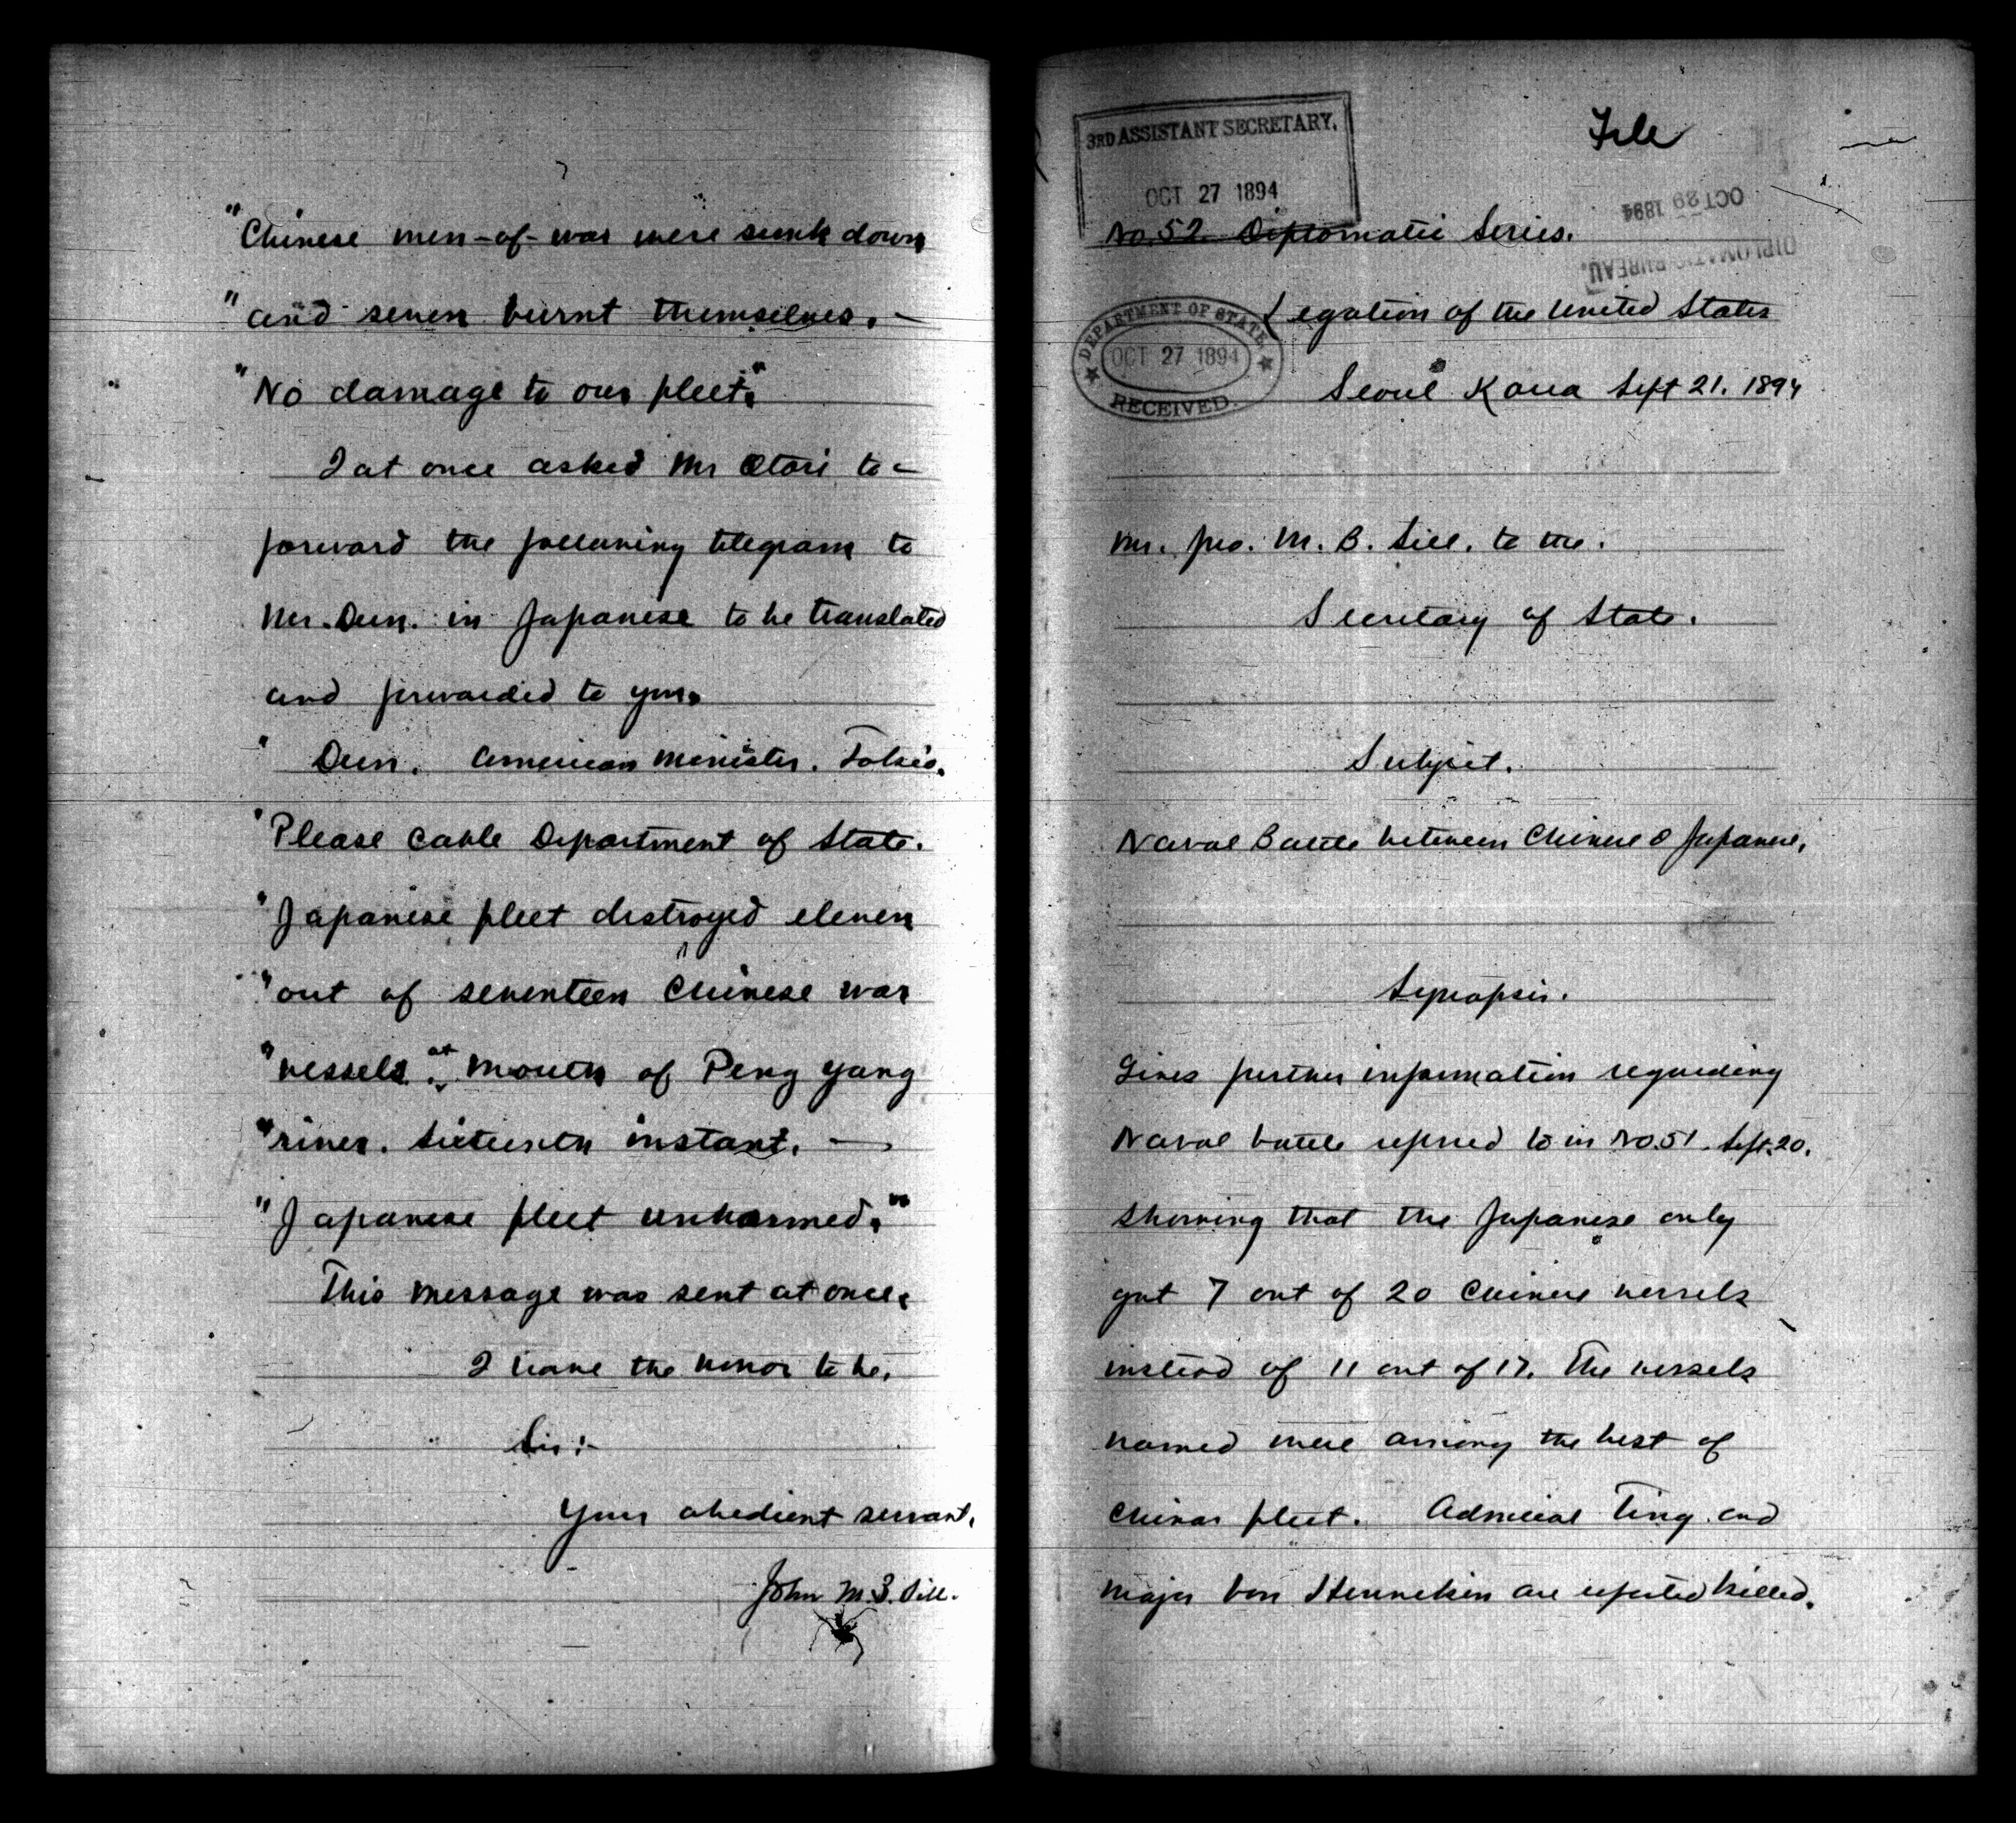 "Chinese men-of-war were sunk down
"and seven burnt themselves. —
"No damage to our fleet."
I at once asked Mr Otori to -
forward the following telegram to
Mr. Dun. in Japanese to be translated
and forwarded to you.
" Dun. American Minister. Tokio.
"Please cable Department of State.
"Japanese fleet destroyed eleven
"out of seventeen Chinese war
"vessels. at mouth of Peng Yang
"river. Sixteenth instant. —
"Japanese fleet unharmed."
This message was sent at once.
I have the honor to be.
Sir:-
Your obedient servant.
John M. B. Sill.
File
3RD ASSISTANT SECRETARY.
OCT 27 1894
OCT 29 1894
DIPLOMATIC BUREAU.
No. 52. Diplomatic Series.
Legation of the United States
DEPARTMENT OF STATE
OCT 27 1894
RECEIVED.
Seoul Korea Sept 21. 1894
Mr. Jno. M. B. Sill. to the.
Secretary of State.
Subject.
Naval Battle between Chinese & Japanese.
Synopsis.
Gives further information regarding
Naval battle referred to in No. 51. Sept. 20.
Showing that the Japanese only
got 7 out of 20 Chinese vessels
instead of 11 out of 17. The vessels
named were among the best of
Chinas fleet. Admiral Ting and
Major Von Hennekin are reported killed.